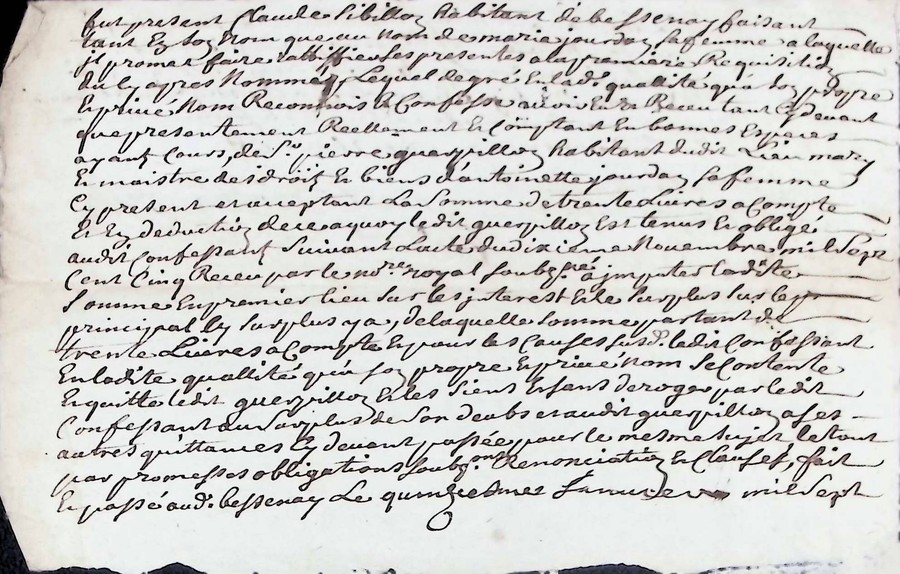 fut present Claude Sibillon habitant de bessenay faisant
tant En son nom que au nom de marie jourdan sa femme a laquelle
jl promet faire rattiffier les presentes a la premiere Requisition
du cy apres Nommé, Lequel de gré En lad. quallité qu'a son propre
Et privé Nom Reconnois & Confesse avoir Eu & Receu tant cy devant
que presentement Reellement Et Comptant En bonnes Especes
ayant Cours, de Sr. pierre guerpillon habitant dudit Lieu mary
Et maistre des droits Et biens d'antoinette jourdan sa femme
Cy present et acceptant La Somme de trente Livres a Compte
Et En deduction de ce a quoy ledit guerpillon Est tenus Et obligé
audit Confessant Suivant L'acte du dixieme Novembre mil Sept
Cent Cinq Receu par le nore. royal Soubzné. a jmputer ladite
Somme En premier lieu Sur les jnterest Et le Surplus Sur le
principal Sy Surplus y a, de laquelle Somme partant de
trente Livres a Compte Et pour les Causes susd. ledit Confessant
En ladite quallité qu'a son propre Et privé Nom Se Contente
Et quitte ledit guerpillon Et les Siens Et Sans deroger par ledit
Confessant au Surplus de Son deubs et audit guerpillon a ses
autres quittances Cy devant passées pour le mesme Sujet le tout
par promesses obligations Soubzons. Renonciation Et Clauses, fait
Et passé aud. bessenay Le quinziesme Januier mil Sept